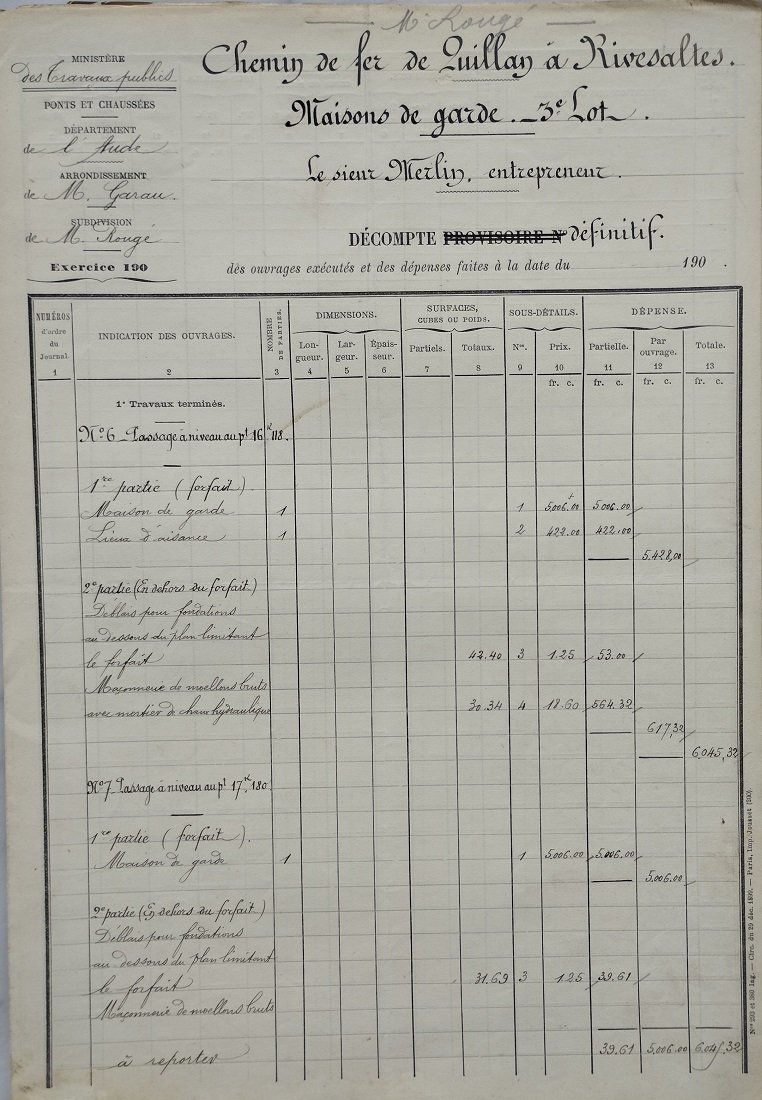 Mr Rougé
MINISTÈRE
des Travaux publics
PONTS ET CHAUSSÉES
DÉPARTEMENT
de l'Aude
ARRONDISSEMENT
de M. Garau.
SUBDIVISION
de M. Rougé
Exercice 190
Chemin de fer de Quillan à Rivesaltes.
Maisons de garde. 3e Lot.
Le sieur Merlin, entrepreneur.
DÉCOMPTE PROVISOIRE N° définitif.
des ouvrages exécutés et des dépenses faites à la date du 190 .
NUMÉROS d'ordre du Journal. 1
INDICATION DES OUVRAGES. 2
NOMBRE DE PARTIES. 3
DIMENSIONS.
Longueur. 4
Largeur. 5
Épaisseur. 6
SURFACES, CUBES OU POIDS.
Partiels. 7
Totaux. 8
SOUS-DÉTAILS.
Nos. 9
Prix. 10
DÉPENSE.
Partielle. 11
Par ouvrage. 12
Totale. 13
fr. c. fr. c. fr. c. fr. c.
1° Travaux terminés.
N°6 Passage à niveau au pt 16k 118.
1re partie (forfait)
Maison de garde 1 1 5.006.00 5.006.00
Lieux d'aisance 1 2 422.00 422.00
5.428,00
2e partie (En dehors du forfait)
Déblais pour fondations
au dessous du plan limitant
le forfait 42.40 3 1.25 53.00
Maçonnerie de moellons bruts
avec mortier de chaux hydraulique 30.34 4 18.60 564.32
617,32
6.045,32
N°7 Passage à niveau au pt 17k,180
1re partie (forfait).
Maison de garde 1 1 5.006.00 5.006.00
5.006.00
2e partie (En dehors du forfait)
Déblais pour fondations
au dessous du plan limitant
le forfait 31.69 3 1.25 39.61
Maçonnerie de moellons bruts
à reporter 39.61 5.006.00 6.045,32
Nos 293 et 360 Ing. — Circ. du 29 déc. 1899. — Paris, Imp. Jousset (200).